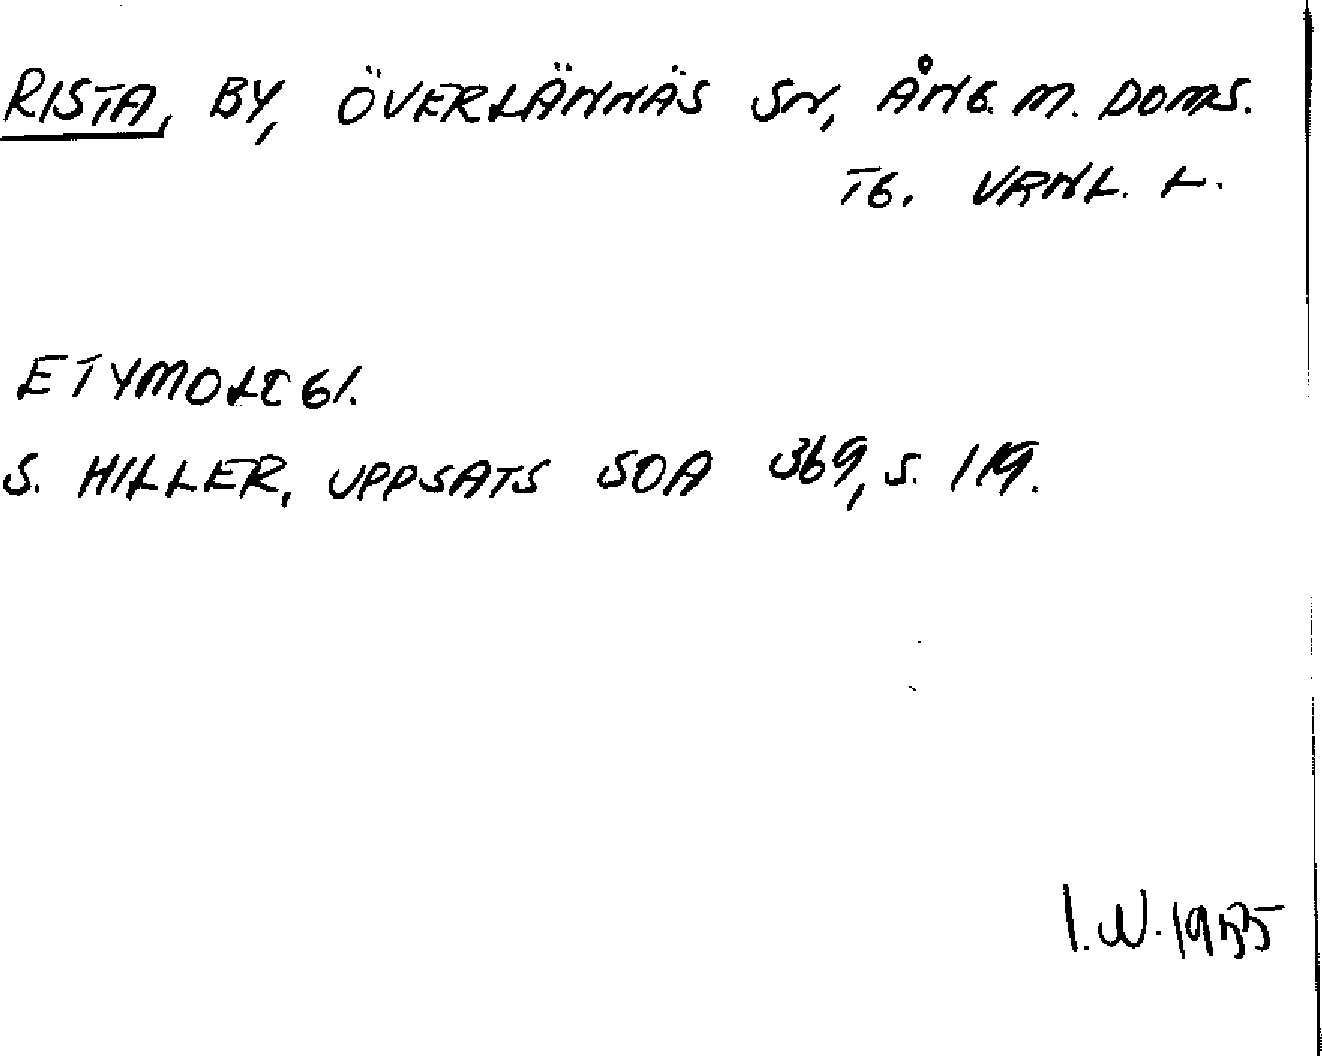 RISTA, BY, ÖVERLÄNNÄS SN, ÅNG. M. DOMS.
TG. VRNL. L.
ETYMOLOGI.
S. HILLER, UPPSATS SOA 369, S. 119.
I.W. 1955